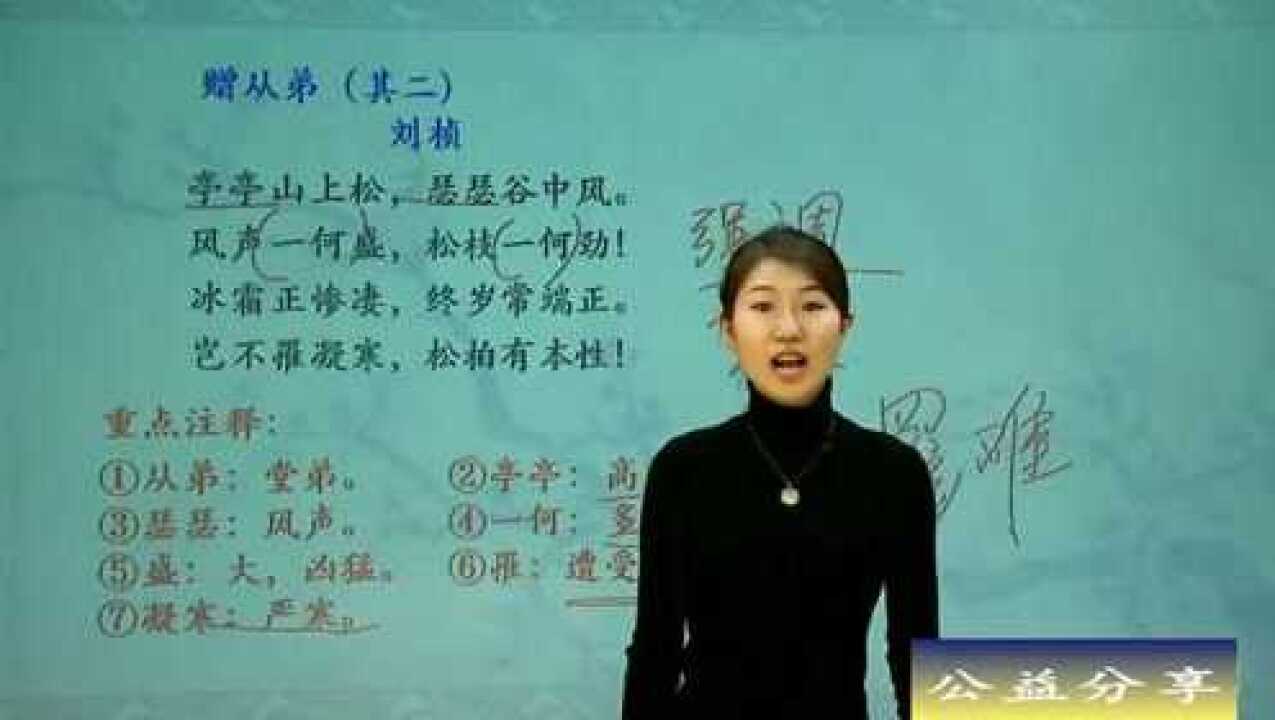 赠从弟（其二）
刘桢
亭亭山上松，瑟瑟谷中风。
风声一何盛，松枝一何劲！
冰霜正惨凄，终岁常端正。
岂不罹凝寒，松柏有本性！
强调
罹难
重点注释：
①从弟：堂弟。 ②亭亭：高
③瑟瑟：风声。 ④一何：多
⑤盛：大，凶猛。 ⑥罹：遭受
⑦凝寒：严寒。
公益分享